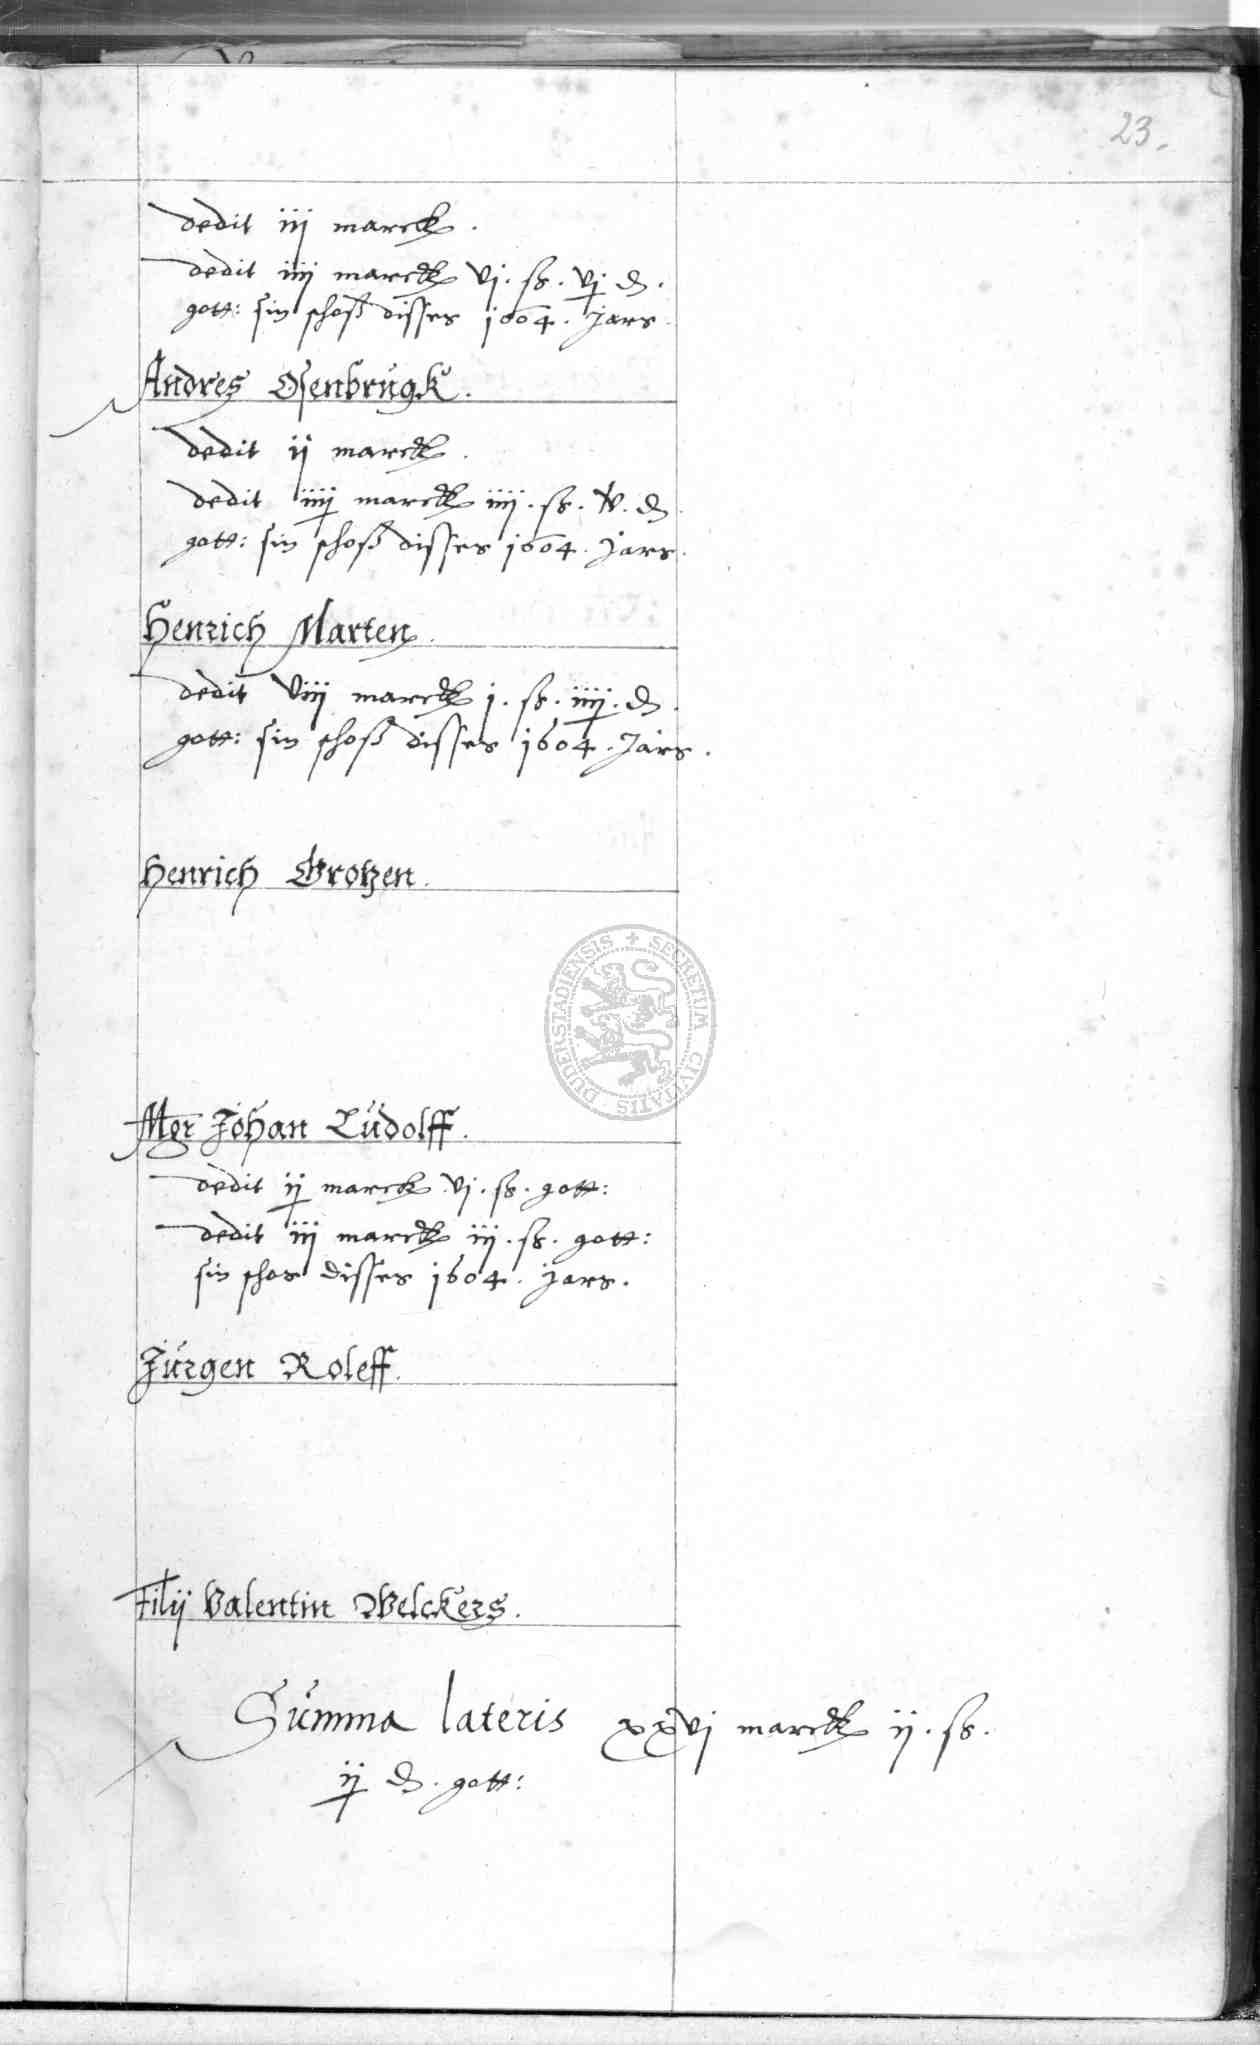 23.
dedit iij marck.
dedit iiij marck vj. ß. vj ₰.
gott: sin schoß disses 1604. Jars
Andres Osenbrugk.
dedit ij marck.
dedit iiij marck iiij. ß. v. ₰
gott: sin schoß disses 1604. Jars.
Henrich Marten.
dedit viij marck j. ß. iiij. ₰.
gott: sin schoß disses 1604. Jars.
Henrich Grotzen.
DUDERSTADIENSIS + SECRETUM CIVITATIS
Mgr Johan Ludolff.
dedit ij marck vj. ß. gott:
dedit iij marck iij. ß. gott:
sin schos disses 1604. jars.
Jurgen Roleff.
Filij Valentin Welckers.
Summa lateris xxvj marck ij. ß.
ij ₰. gott: